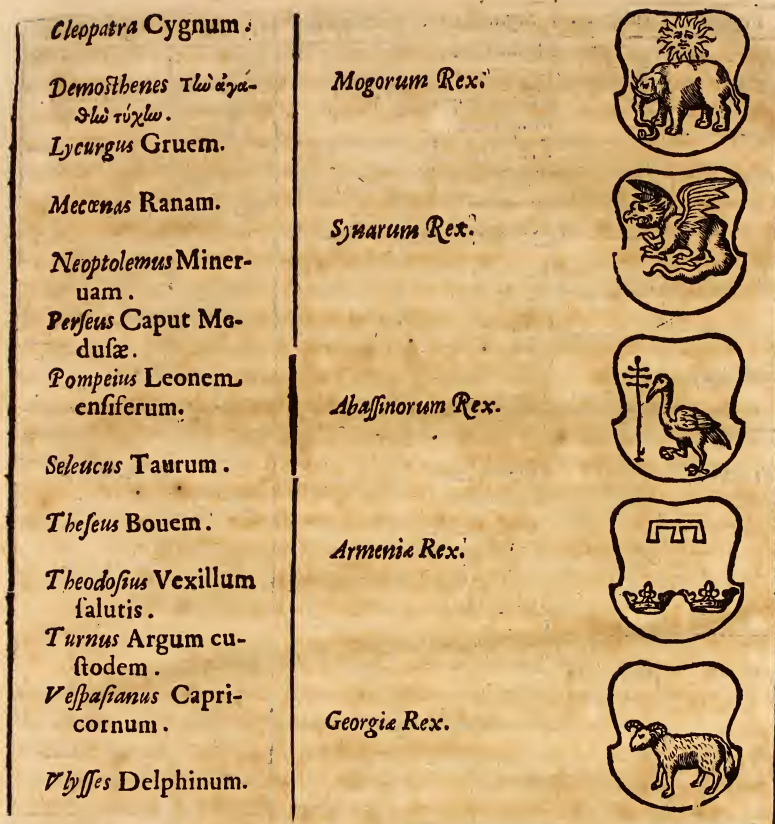 Cleopatra Cygnum.
Demosthenes Τἰω ἀγα-
ϑἰω τύχἰω.
Lycurgus Gruem.
Mecœnas Ranam.
Neoptolemus Miner-
uam.
Perſeus Caput Me-
duſæ.
Pompeius Leonem
enſiferum.
Seleucus Taurum.
Theſeus Bouem.
Theodoſius Vexillum
ſalutis.
Turnus Argum cu-
ſtodem.
Veſpaſianus Capri-
cornum.
Vlyſſes Delphinum.
Mogorum Rex.
Synarum Rex.
Abaſſinorum Rex.
Armeniæ Rex.
Georgiæ Rex.